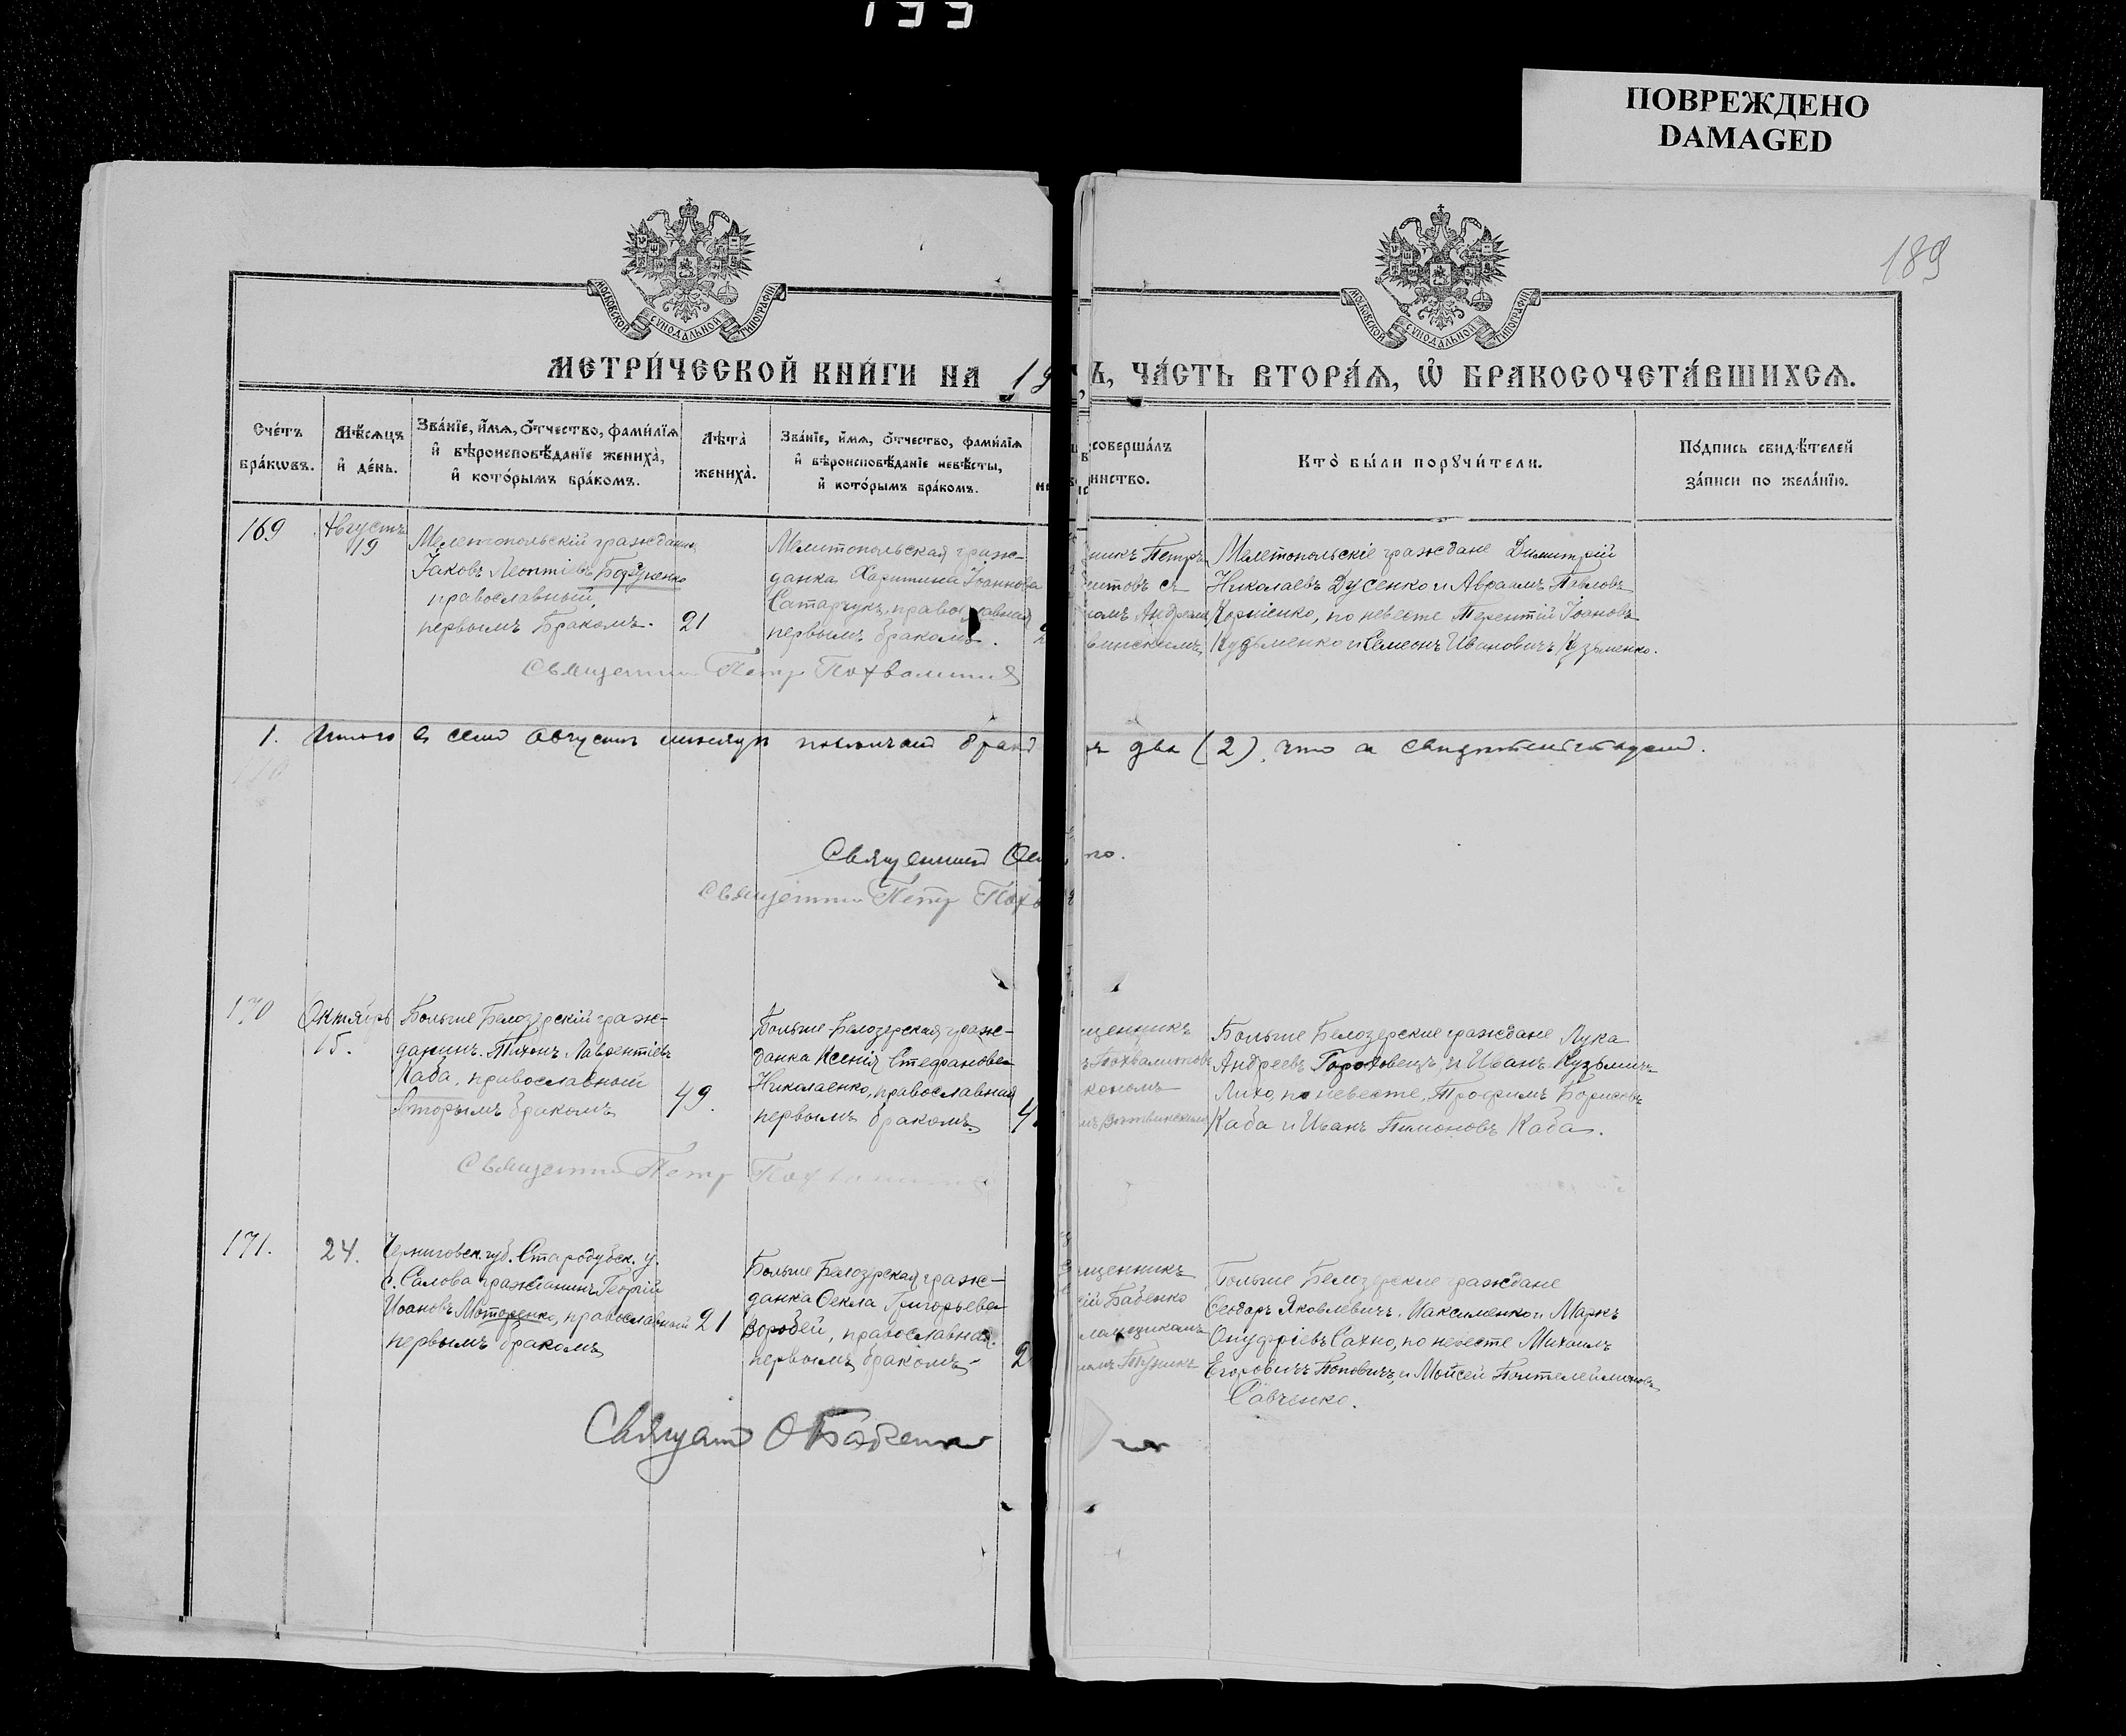 199
ПОВРЕЖДЕНО
DAMAGED
189
МОСКОВСКОЙ СѴНОДАЛЬНОЙ ТИПОГРАФІИ
МОСКОВСКОЙ СѴНОДАЛЬНОЙ ТИПОГРАФІИ
МЕТРИ́ЧЕСКОЙ КНИ́ГИ НА 19
Ъ, ЧА́СТЬ ВТОРА́Ѧ, Ѡ҆ БРАКОСОЧЕТА́ВШИХСѦ.
Сче́тъ бра́кѡвъ.
Мѣ́сѧцъ и҆ де́нь.
Зва́нїе, и҆́мѧ, ѻ҆́тчество, фами́лїѧ
и҆ вѣроисповѣ́данїе жениха̀,
и҆ кото́рымъ бра́комъ.
Лѣ́та жениха̀.
Зва́нїе, и҆́мѧ, ѻ҆́тчество, фами́лїѧ
и҆ вѣроисповѣ́данїе невѣ́сты,
и҆ кото́рымъ бра́комъ.
соверша́лъ
инство.
Кто̀ бы́ли порꙋчи́тели.
По́дпись свидѣ́телей
за́писи по жела́нїю.
169
Августъ
19
Мелетопольскій гражданинъ
Іаковъ Леонтіевъ
православный,
первымъ бракомъ.
21
Мелитопольская граж-
данка Харитина Іоаннова
Сатарчукъ, православная
первымъ бракомъ.
2
никъ Петръ
итовъ съ
омъ Андреем
винскимъ
Мелетопольскіе граждане Димитрій
Николаевъ Дусенко и Авраамъ Павловъ
Корніенко, по невесте Терентій Іоановъ
Кузьменко и Семеонъ Ивановичъ Кузьменко.
Священник Петр Похвалитов
1. Итого в сем августе месяце повенчано брако
въ два (2), что и свидетельствуем.
Священник
но.
Священник Петр Похв
170
Октября
15.
Больше Белозерскій граж-
данинъ Тихонъ Лаврентіевъ
Каба, православный
вторымъ бракомъ
49.
Больше-Белозерская граж-
данка Ксенія Стефановна
Николаенко, православная
первымъ бракомъ.
4
щенникъ
ъ Похвалитовъ
кономъ
Больше Белозерские граждане Лука
Андреевъ Гороховецъ, и Иванъ Кузьмичъ
Лихо, по невесте, Трофимъ Борисовъ
Каба и Иванъ Пимоновъ Каба.
Священник Петр Похвалитов
171.
24.
Черниговск. губ. Стародубск. у.
с. Салова гражданинъ Георгій
Иоановъ Моторенко, православный
первымъ бракомъ
21
Больше Белозерская граж-
данка Фекла Григорьева
Воробей, православная.
первымъ бракомъ
2
щенникъ
сій Бабенко
ломщикомъ
Больше Белозерские граждане
Феодоръ Яковлевичъ Максименко и Маркъ
Онуфріевъ Сахно, по невесте Михаилъ
Егоровичъ Поповичъ, и Моисей Пантелеймоновъ
Савченко.
Священ О Бабенко